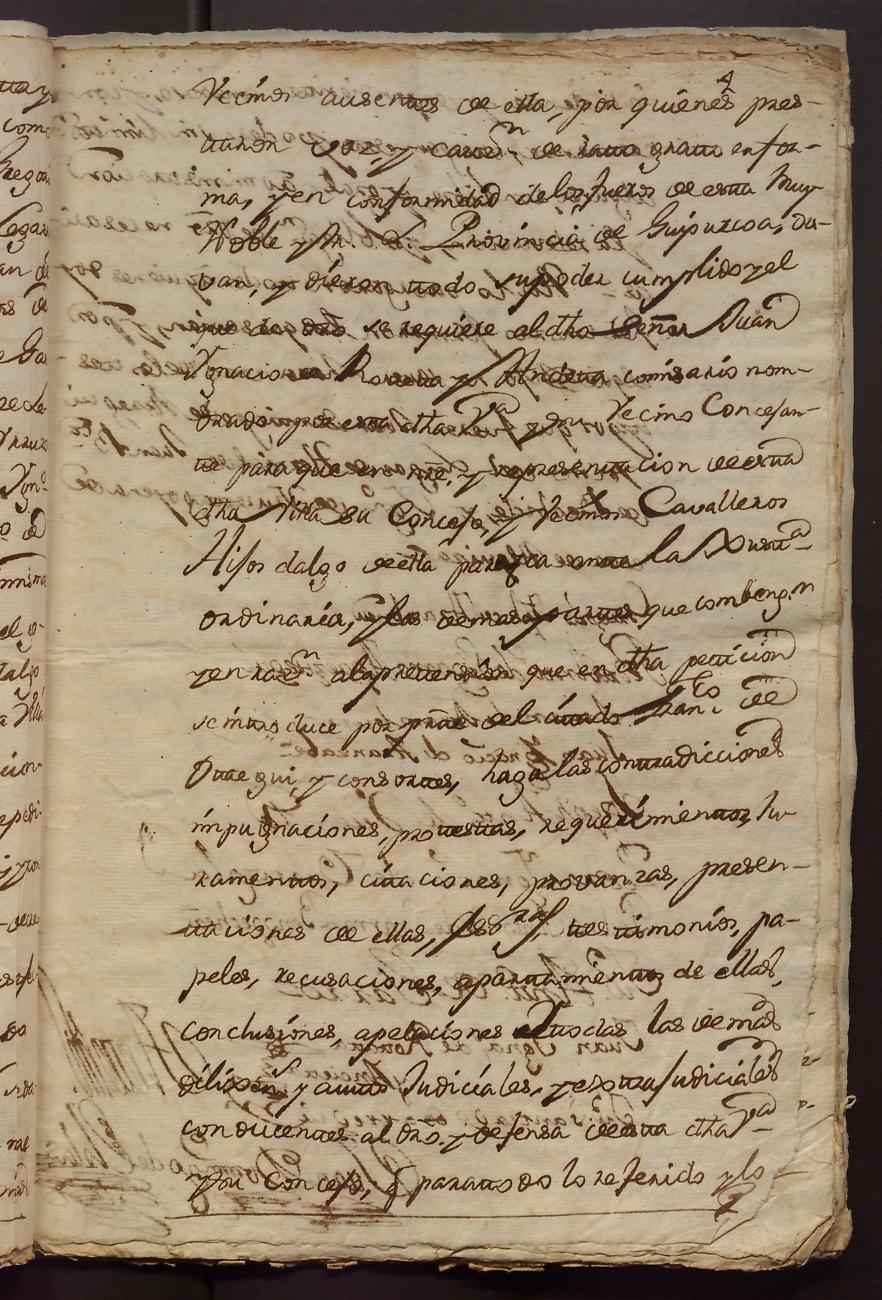 4
Vecinos ausentes de ella, por quienes pres-
taron voz, y cauzn. de ratto gratto enfor-
ma, y en conformidad de los fueros de esta Muy
Noble y M. L. Provincia de Guipuzcoa, da-
van, y dieron todo su poder cumplido y el
que de dro. se requiere al dho Señor Juan
Ygnacio de y comisario nom-
brado por esta dha Va. y su Vecino Concejan-
te para que en nre. y representacion de esta
dha Villa su Concejo, y Vecinos Cavalleros
Hijos dalgo de ella parezca ante la Justa.
ordinaria, y las demas partes que combengn.
y en razn. a la prettension que en dha petticion
se inttroduce por prte. del cittado Franco. de
Ottegui, y consortes, haga las conttradicciones
impugnaciones, protesttas, requerimientos, Ju-
ramenttos, cittaciones, provanzas, presen-
ttaciones de ellas, testimonios, pa-
peles, recusaciones, aparttamienttos de ellas,
conclusiones, apelaciones y ttodas las demas
dilixens. y autos Judiciales, y exttraJudiciales
conducenttes al dro. y defensa de esta dha Va.
y su Concejo, q paratodo lo referido y lo